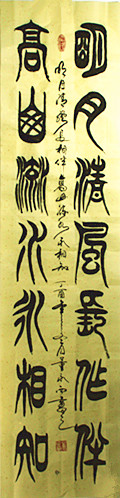 明月清風長作伴
明月清風長相伴 高山流水永相知 酉年 月
高山流水永相知